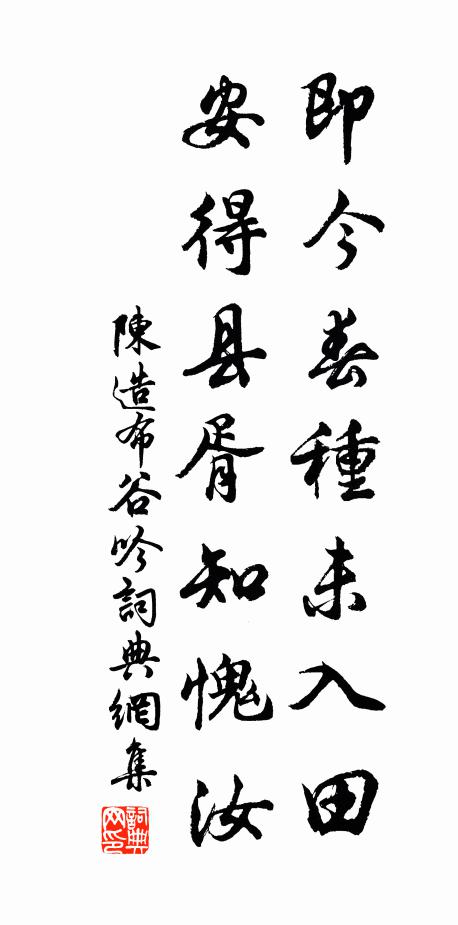 即今春種未入田
安得县胥知愧汝
陳造布谷吟詞典網集
詞典网印